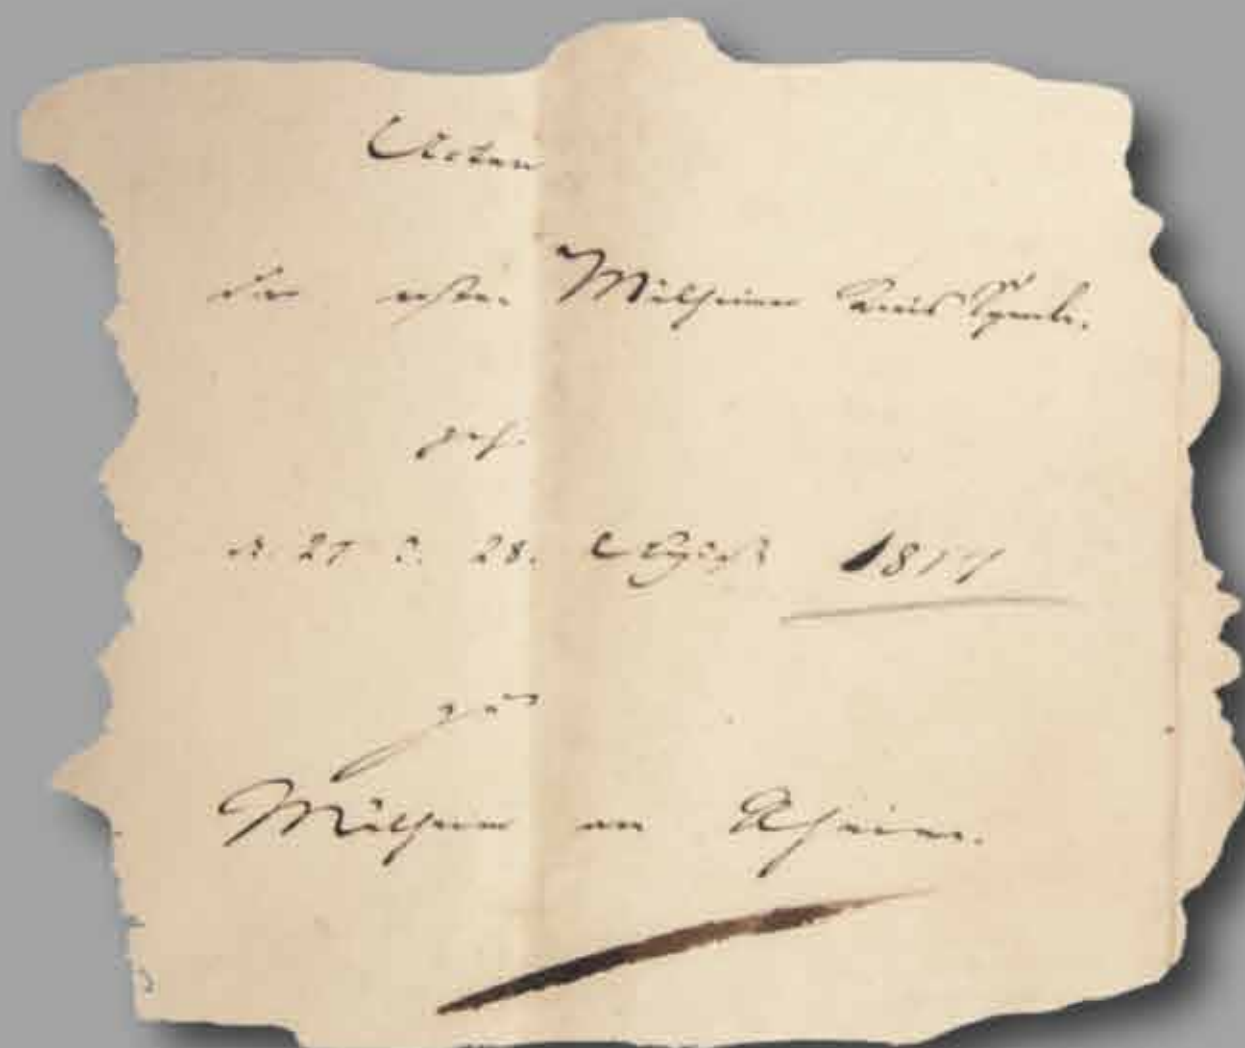 Acten
der ersten Mülheimer Kreis Synode.
geh.
d. 27 u. 28. August 1817
zu
Mülheim am Rhein.